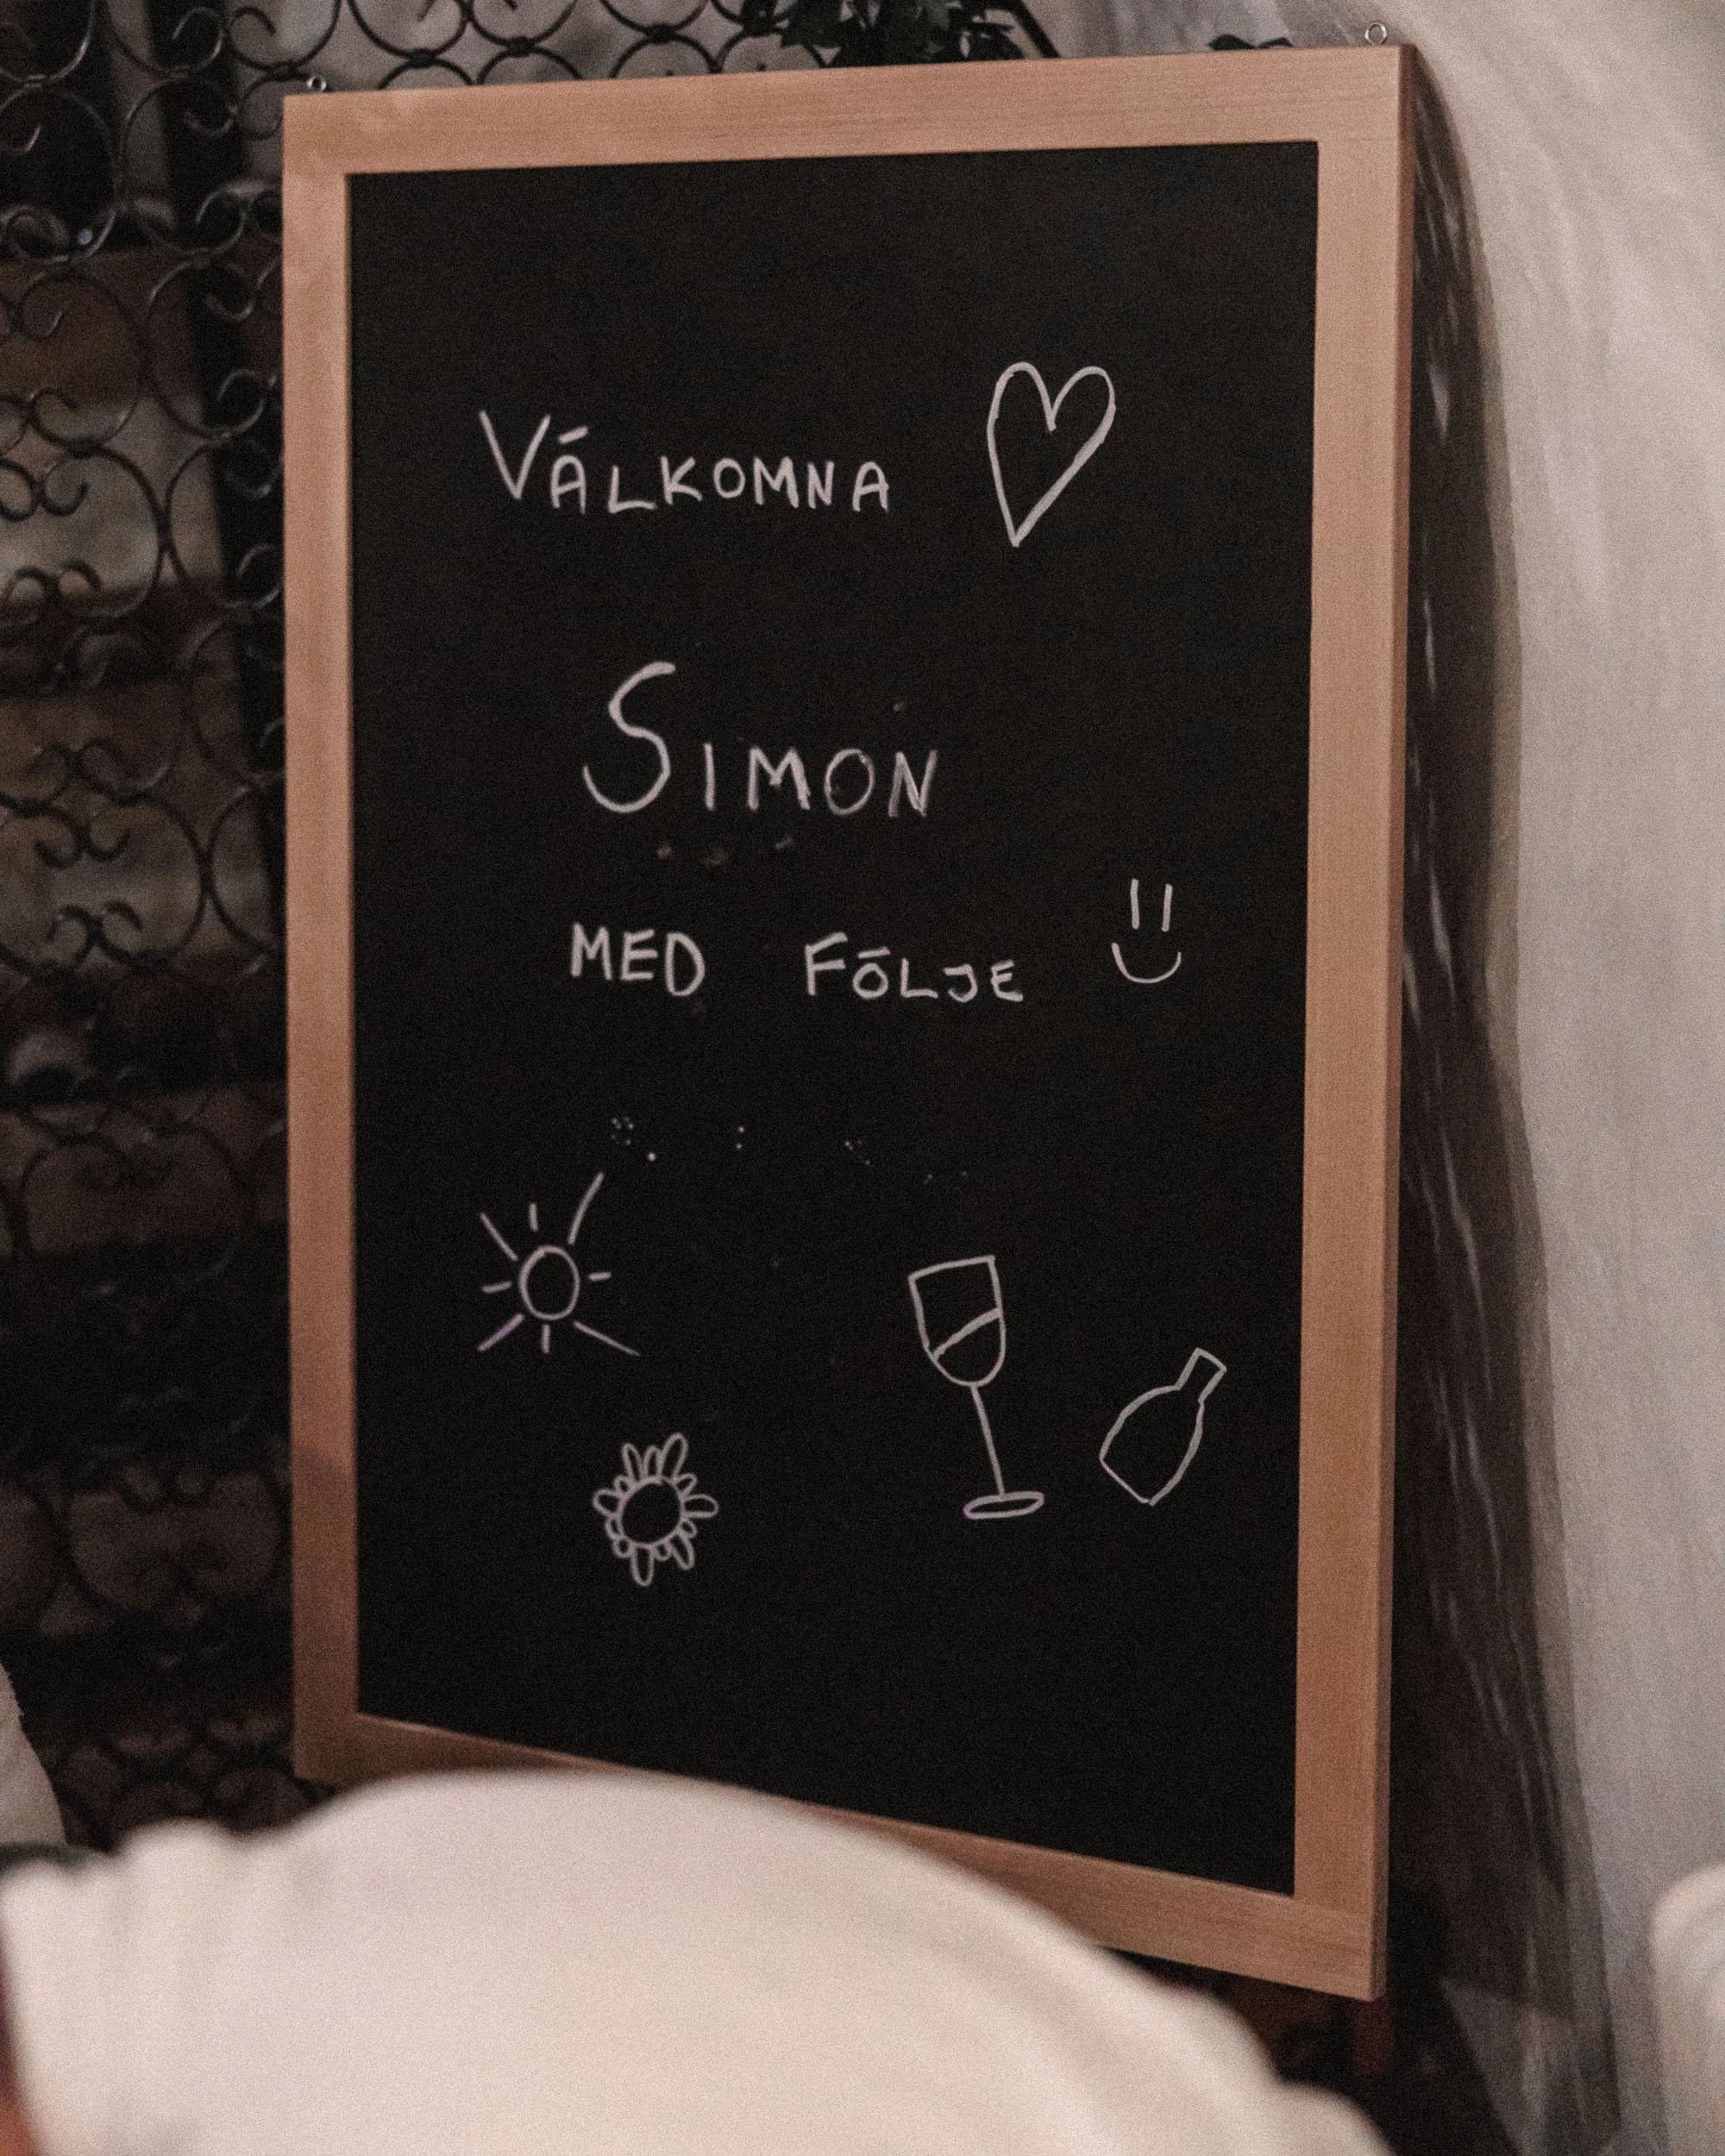 VÄLKOMNA
SIMON
MED FÖLJE